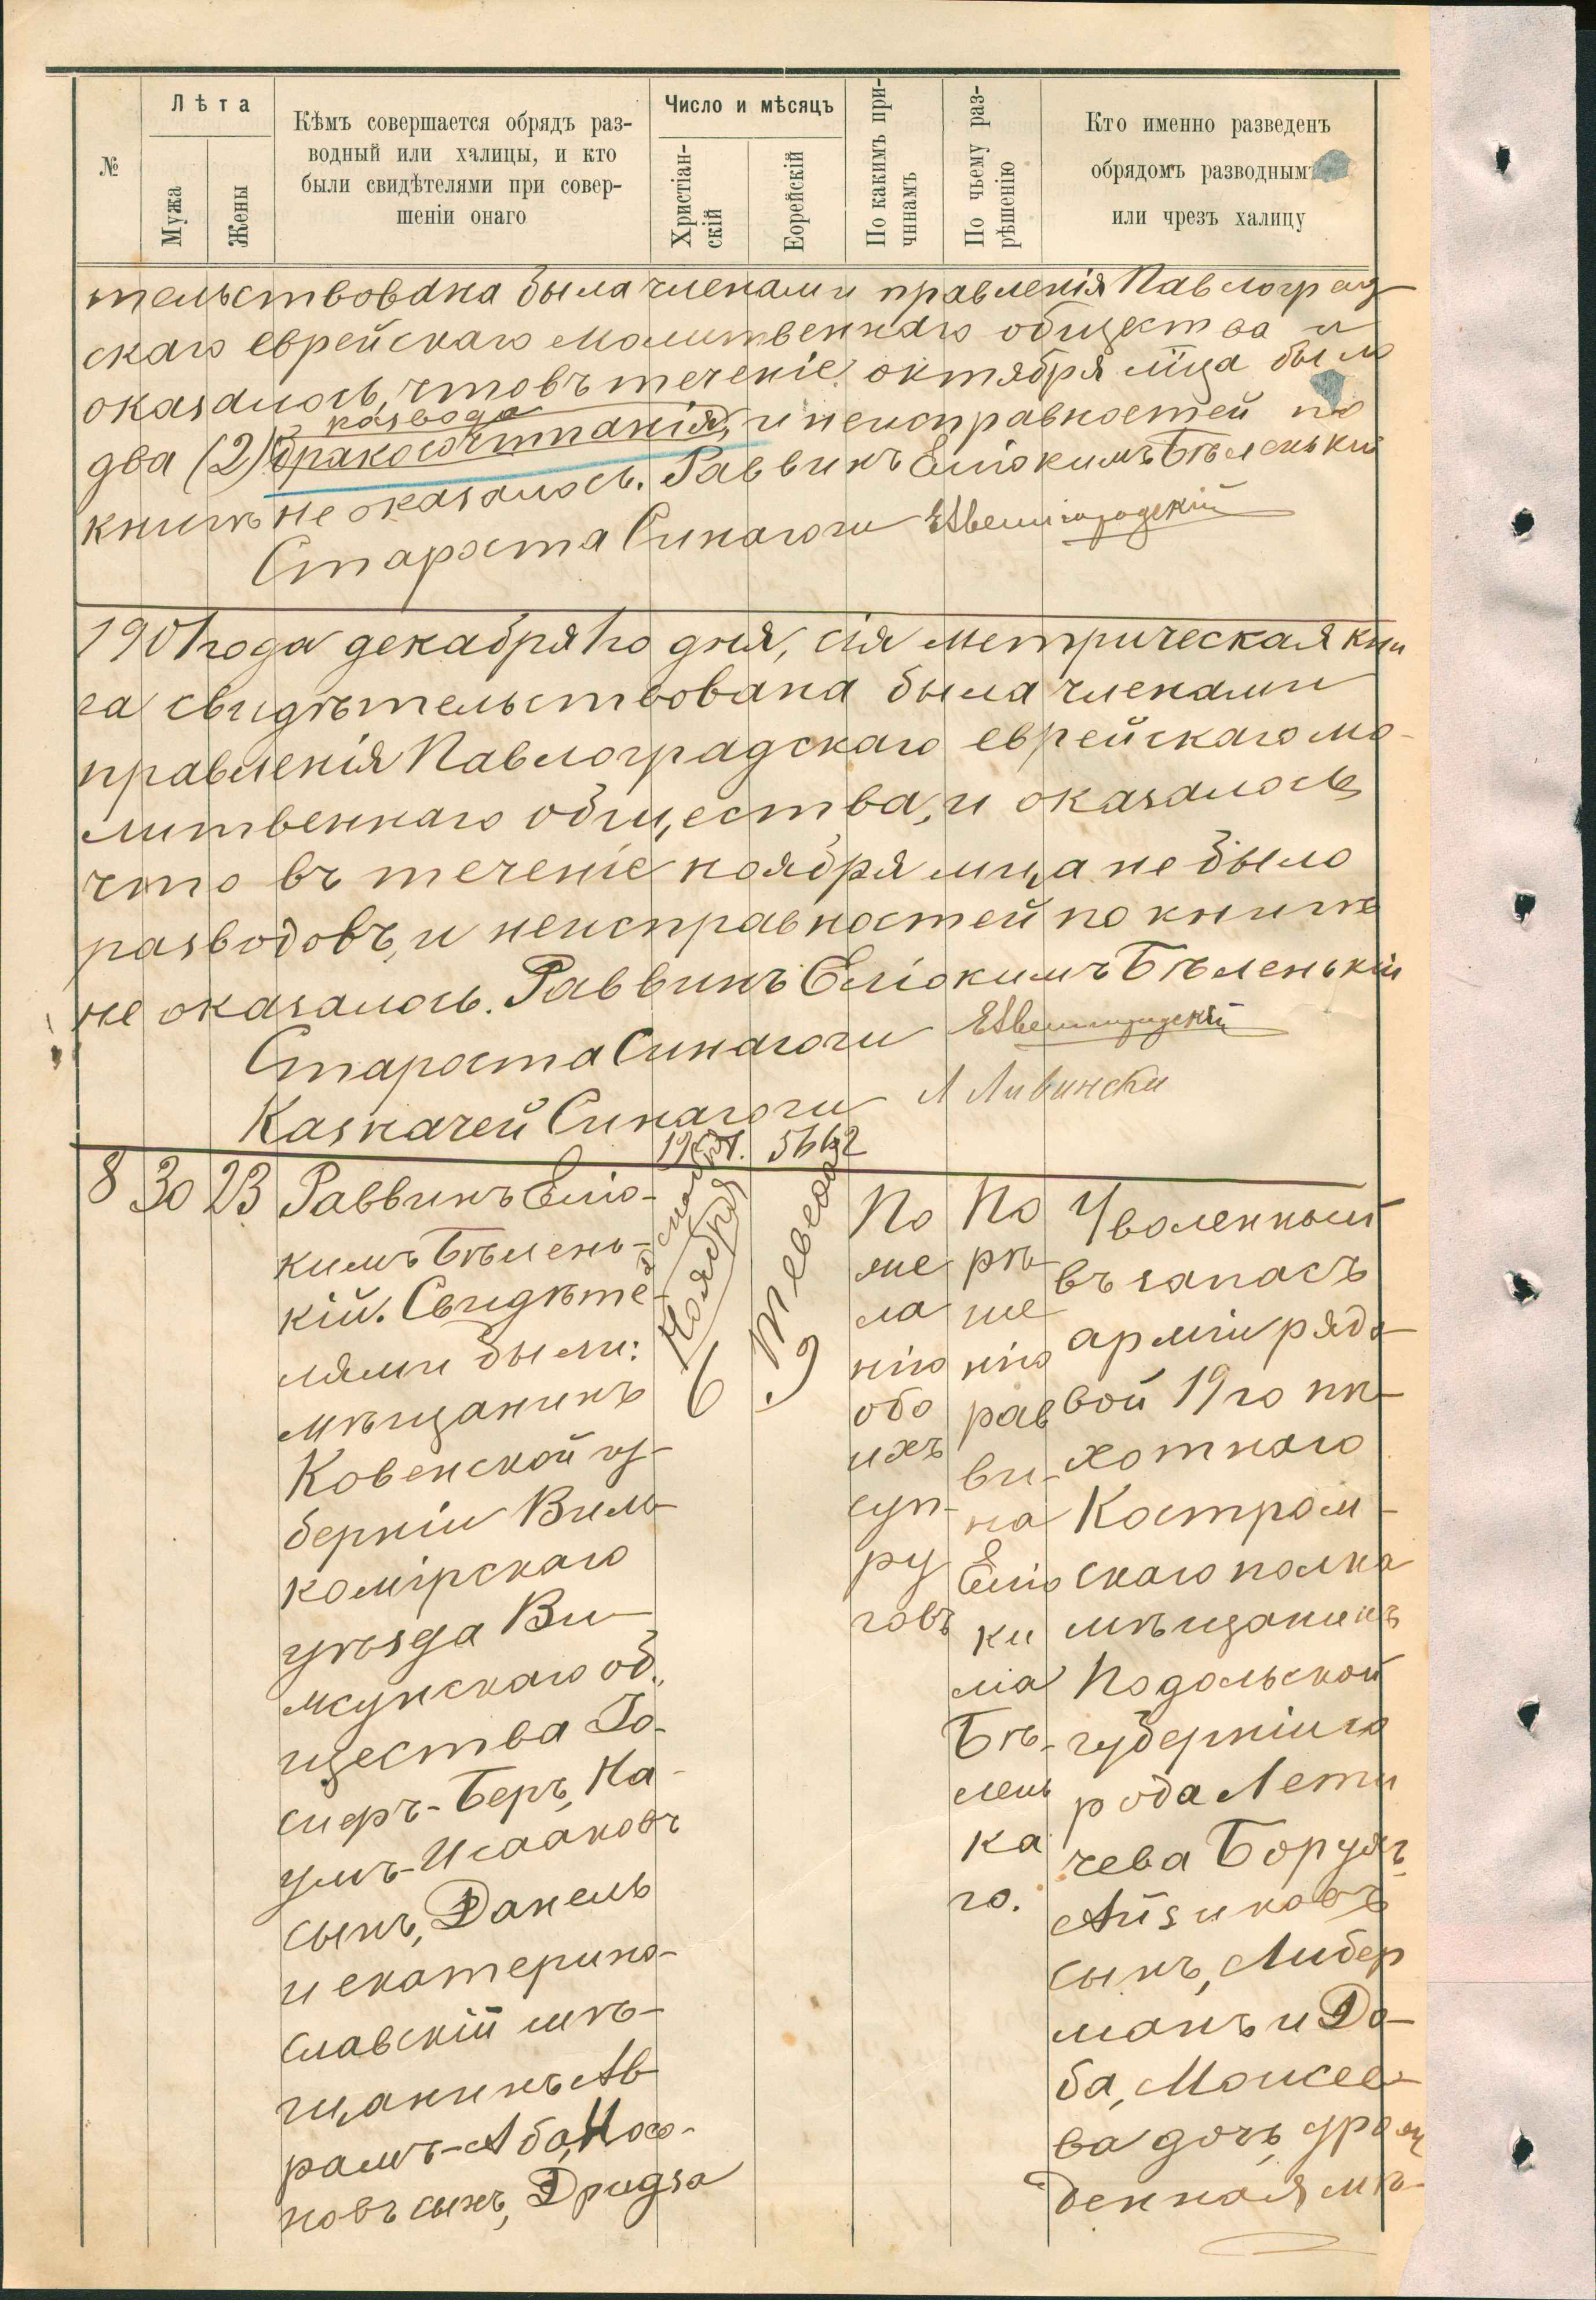 №
Лѣта
Мужа
Жены
Кѣмъ совершается обрядъ раз-
водный или халицы, и кто
были свидѣтелями при совер-
шеніи онаго
Число и мѣсяцъ
Христіан-
скій
Еврейскій
По какимъ при-
чинамъ
По чьему раз-
рѣшенію
Кто именно разведенъ
обрядомъ разводнымъ
или чрезъ халицу
тельствована была членами правленія Павлоград
скаго еврейскаго молитвеннаго общества и
оказалось, что въ теченіе октября мца было
развода
два (2) бракосочитанія, и неисправностей по
книгѣ не оказалось. Раввинъ Еліокимъ Бѣленькій
Староста Синагоги
1901 года декабря 1го дня, сія метрическая кни
га свидѣтельствована была членами
правленія Павлоградскаго еврейскаго мо-
литвеннаго общества, и оказалось
что въ теченіе ноября мца не было
разводовъ, и неисправностей по книгѣ
не оказалось. Раввинъ Еліокимъ Бѣленькій
Староста Синагоги
Казначей Синагоги
8 30 23
Раввинъ Еліо-
кимъ Бѣлень-
кій. Свидѣте-
лями были:
мѣщанинъ
Ковенской гу-
берніи Виль-
комірскаго
уѣзда Ви-
жунскаго об-
щества Іо-
сифъ-Беръ, На-
умъ-Исааковъ
сынъ, Данель
и екатерино-
славскій мѣ-
щанинъ Ав-
рамъ-Аба, Носо-
новъ сынъ, Дридза
1901.
6 Ноября
5662
9 Тевеса
По
же
ла
нію
обо
ихъ
суп-
ру
говъ
По
рѣ-
ше
нію
рав
ви-
на
Еліо
ки
ма
Бѣ-
лень
ка
го.
Уволенный
въ запасъ
арміи рядо-
вой 19го пѣ-
хотнаго
Костром-
скаго полка
мѣщанинъ
Подольской
губерніи го
рода Лети
чева Борухъ
Айзиковъ
сынъ, Либер
манъ и До-
ба, Моисее-
ва дочь, урож
денная мѣ-